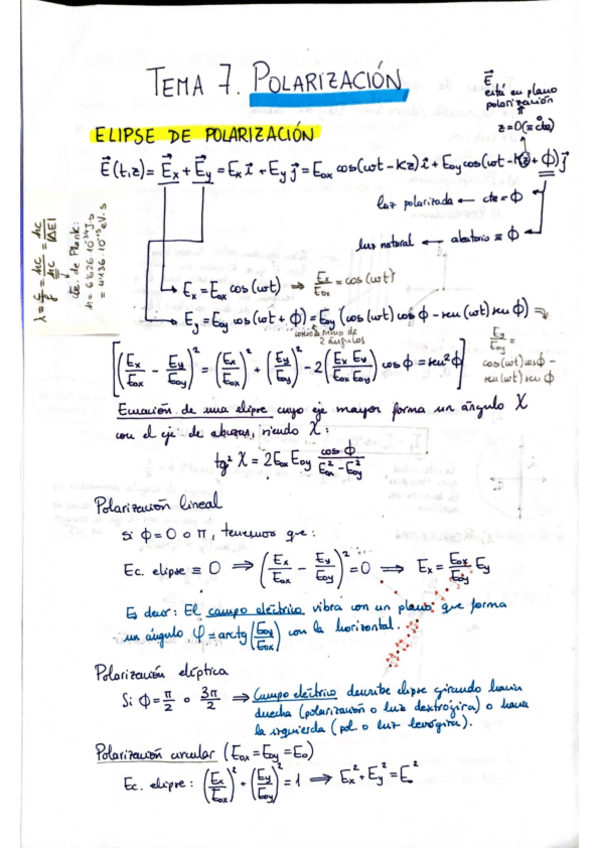 TEMA 7. POLARIZACIÓN
E⃗ está en plano polarización z=0(≡cte)
ELIPSE DE POLARIZACIÓN
E⃗(t,z) = E⃗x + E⃗y = Ex i⃗ + Ey j⃗ = Eox cos(ωt - Kz) i⃗ + Eoy cos(ωt - Kz + ϕ) j⃗
luz polarizada ← cte = ϕ
luz natural ← aleatorio ≡ ϕ
λ = c/f = hc/|ΔE|
cte. de Plank:
h = 6'626·10⁻³⁴ J·s
eV·s
→ Ex = Eox cos(ωt) ⇒ Ex/Eox = cos(ωt)
→ Ey = Eoy cos(ωt + ϕ) = Eoy (cos(ωt) cos ϕ - sen(ωt) sen ϕ)
coseno de suma de 2 ángulos
Ey/Eoy = cos(ωt)cosϕ - sen(ωt) sen ϕ
[(Ex/Eox - Ey/Eoy)² = (Ex/Eox)² + (Ey/Eoy)² - 2(Ex Ey/Eox Eoy) cos ϕ = sen² ϕ]
Ecuación de una elipse cuyo eje mayor forma un ángulo χ
con el eje de abcisas, siendo χ:
tg² χ = 2 Eox Eoy cos ϕ/(E²ox - E²oy)
Polarización lineal
Si ϕ = 0 o π, tenemos que:
Ec. elipse ≡ 0 ⇒ (Ex/Eox - Ey/Eoy)² = 0 ⇒ Ex = Eox/Eoy Ey
Es decir: El campo eléctrico vibra con un plano que forma
un ángulo φ = arctg(Eoy/Eox) con la horizontal.
Polarización elíptica
Si ϕ = π/2 o 3π/2 ⇒ Campo eléctrico describe elipse girando hacia
derecha (polarización o luz dextrógira) o hacia
la izquierda (pol. o luz levógira).
Polarización circular (Eox = Eoy = Eo)
Ec. elipse: (Ex/Eox)² + (Ey/Eoy)² = 1 ⇒ Ex² + Ey² = Eo²